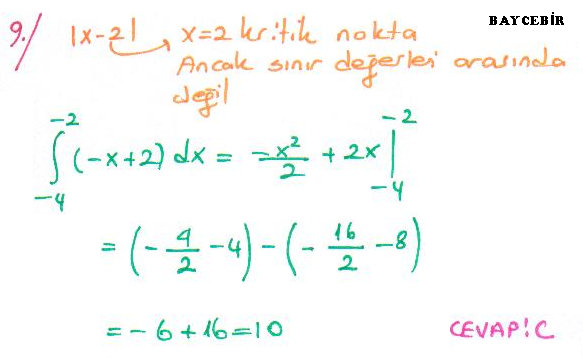 BAYCEBİR
9./ |x-2| x=2 kritik nokta
Ancak sınır değerleri arasında
değil
∫_{-4}^{-2} (-x+2) dx = -x²/2 + 2x |_{-4}^{-2}
= (-4/2 -4) - (-16/2 -8)
= -6+16=10
CEVAP: C